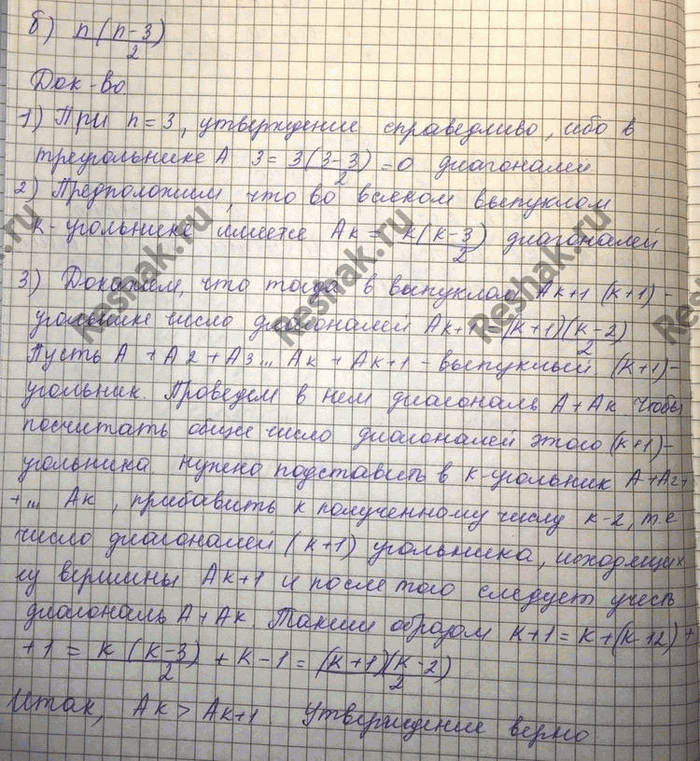 б) n(n-3)/2
Док-во
1) При n=3, утверждение справедливо, ибо в
треугольнике A 3 = 3(3-3)/2 = 0 диагоналей
2) Предположим, что во всяком выпуклом
к-угольнике имеется Aк = к(к-3)/2 диагоналей
3) Докажем, что тогда в выпуклом Aк+1 (к+1)-
угольнике число диагоналей Aк+1 = (к+1)(к-2)/2
Пусть A + A2 + A3 ... Aк + Aк+1 - выпуклый (к+1)-
угольник. Проведем в нем диагональ A+Aк. Чтобы
посчитать общее число диагоналей этого (к+1)-
угольника. Нужно подставить в к-угольник A+A2+
+... Aк, прибавить к полученному числу к-2, т.е
число диагоналей (к+1) угольника, исходящих
из вершины Aк+1 и после того следует учесть
диагональ A+Aк. Таким образом к+1 = к+(к-12)+
+1 = к(к-3)/2 + к-1 = (к+1)(к-2)/2
Итак, Aк > Aк+1. Утверждение верно
Reshak.ru
Reshak.ru
Reshak.ru